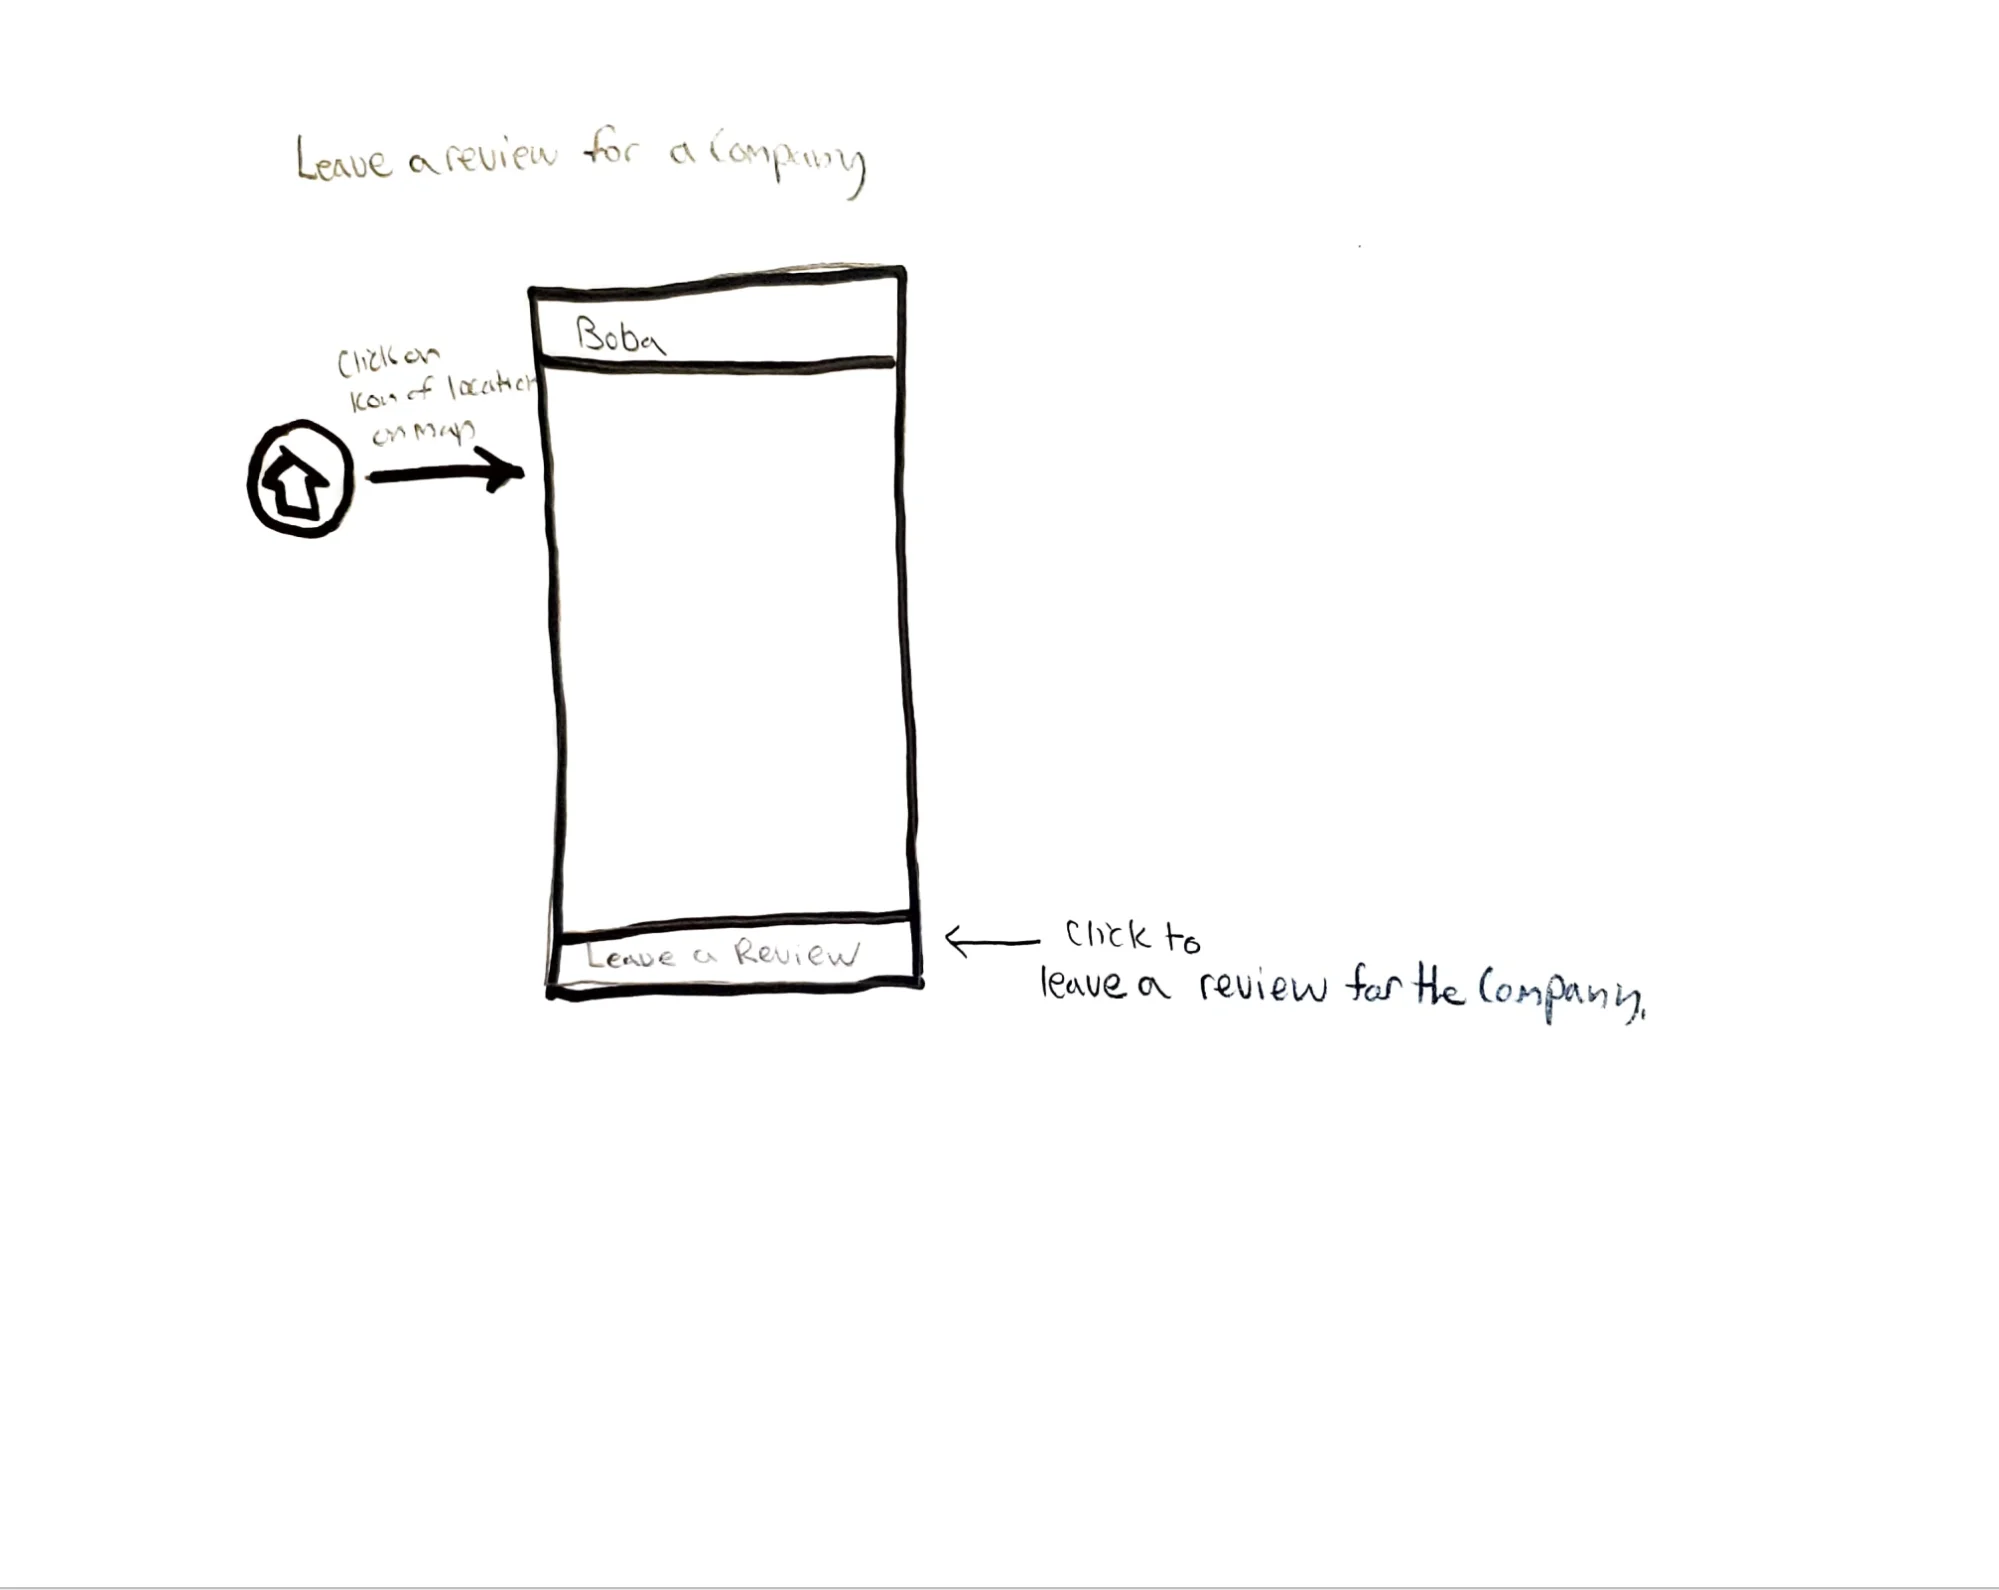 Leave a review for a Company
Boba
Click on
Icon of location
on map
Leave a Review
Click to
leave a review for the Company.